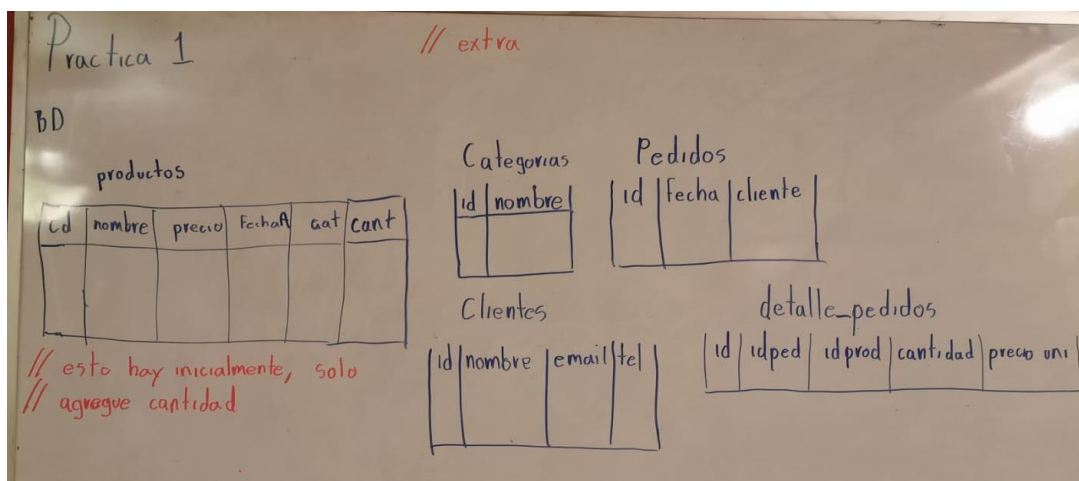 Practica 1
// extra
BD
productos
id nombre precio FechaA cat cant
// esto hay inicialmente, solo
// agregue cantidad
Categorias
id nombre
Pedidos
id fecha cliente
Clientes
id nombre email tel
detalle_pedidos
id idped idprod cantidad precio uni